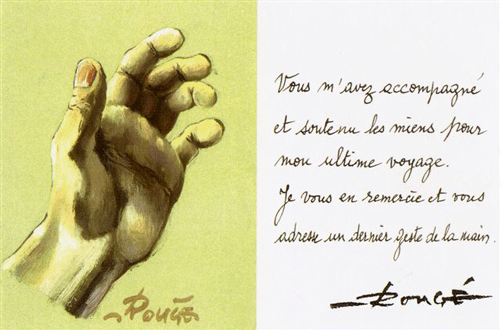 Rougé
Vous m'avez accompagné
et soutenu les miens pour
mon ultime voyage.
Je vous en remercie et vous
adresse un dernier geste de la main.
Rougé